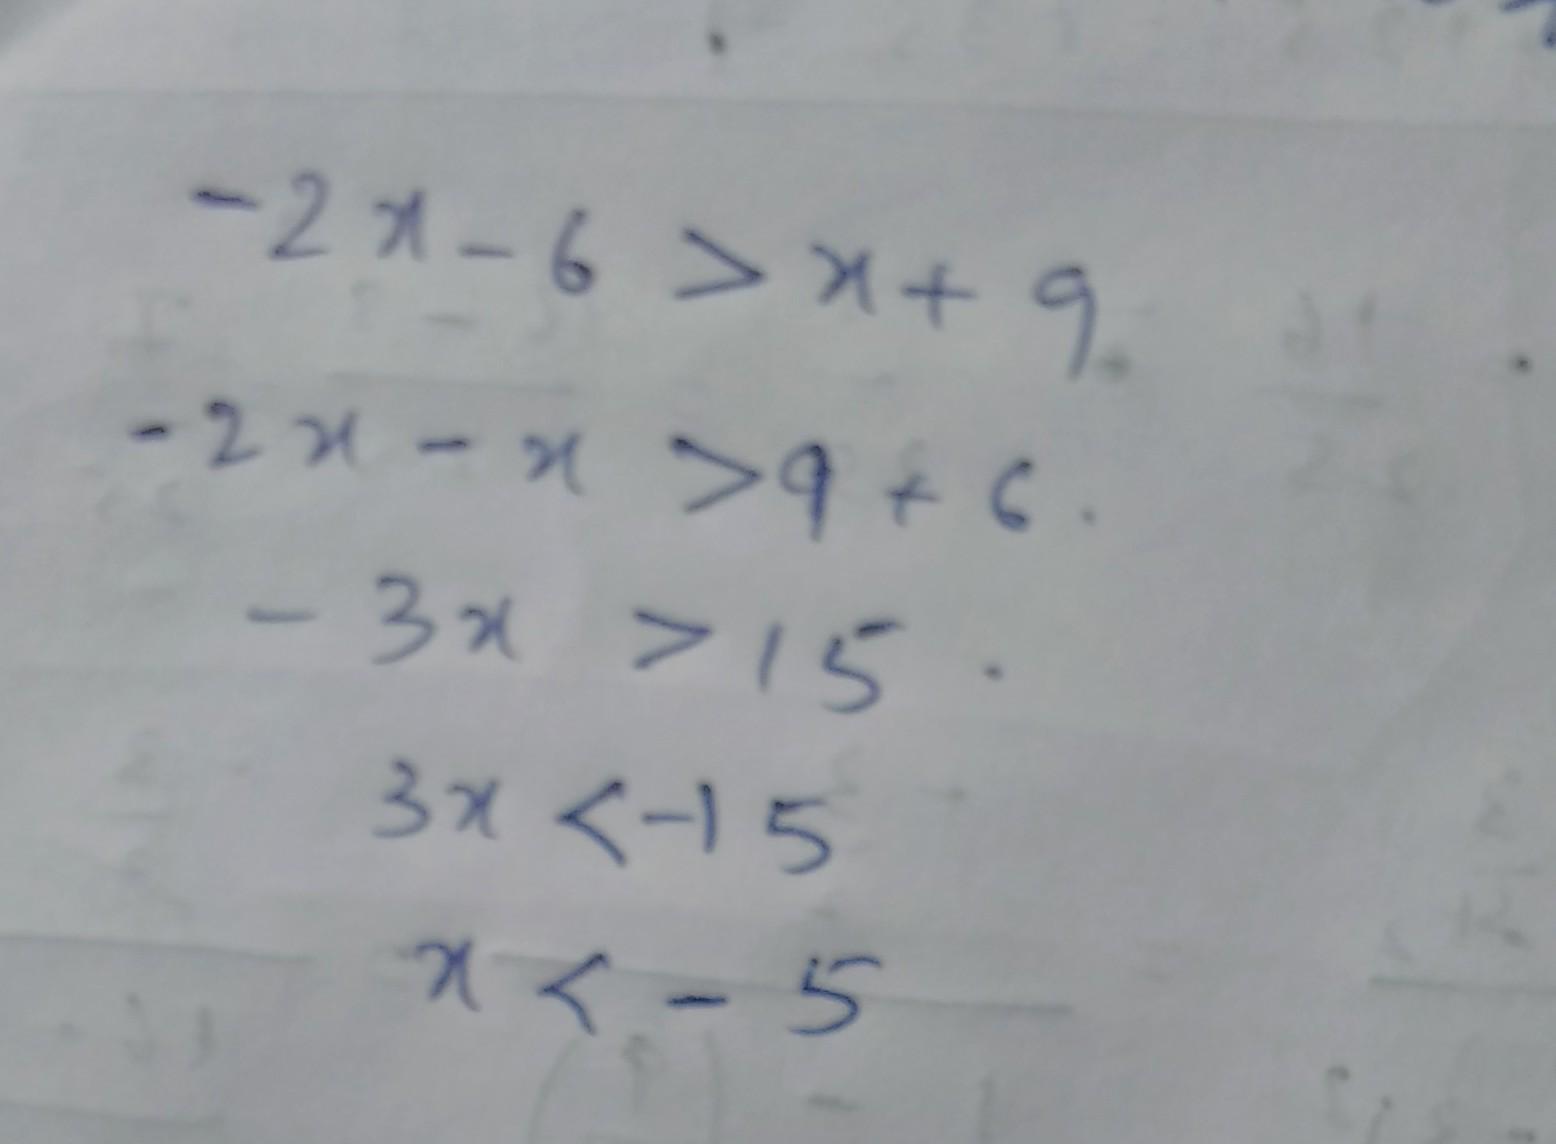 -2x - 6 > x + 9
-2x - x > 9 + 6.
- 3x > 15.
3x < -15
x < - 5